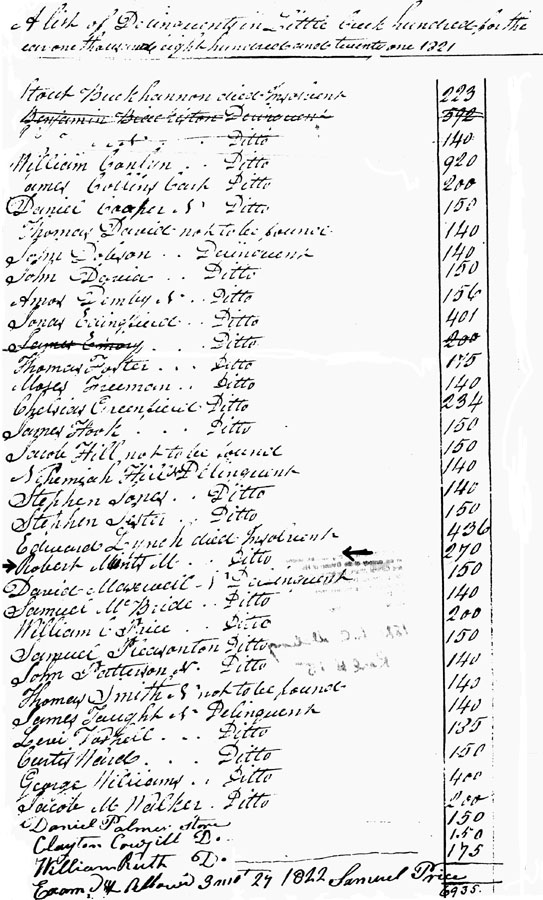 A list of Delinquents in Little Creek hundred for the
year one thousand eight hundred and twenty one 1821
Stout Buckhannon died Insolvent 223
Benjamin Delinquent 592
Ditto 140
William Conlyn . . Ditto 920
James Collins Ditto 200
Daniel Cooper N . Ditto 150
Thomas David not to be found 140
John Dobson . . Delinquent 140
John David . . Ditto 150
Amos Dimby N . . Ditto 156
Jonas Edingfield . . Ditto 401
James Emory . . Ditto 200
Thomas Foster . . . Ditto 175
Moses Freeman . . Ditto 140
Greenfield Ditto 234
James Hook . . . Ditto 150
Jacob Hill not to be found 150
Nehemiah Hill Delinquent 140
Stephen Jones . . Ditto 140
Stephen Lister . . Ditto 150
Edward Lynch died Insolvent 436
Robert M . . Ditto 270
David Maxwell N Delinquent 150
Samuel McBride . . Ditto 140
William C Price . . Ditto 200
Samuel Pleasonton Ditto 150
John Patterson N . Ditto 140
Thomas Smith N not to be found 140
James Taught N Delinquent 140
Levi . . . Ditto 135
Curtis Ward . . . Ditto 150
George Williams . . Ditto 400
Jacob M Walker . Ditto 200
Daniel Palmer 150
Clayton Cowgill D. 150
William Ruth D. 175
Exam & Allowed 3 mo 27 1822 Samuel Price 6935.